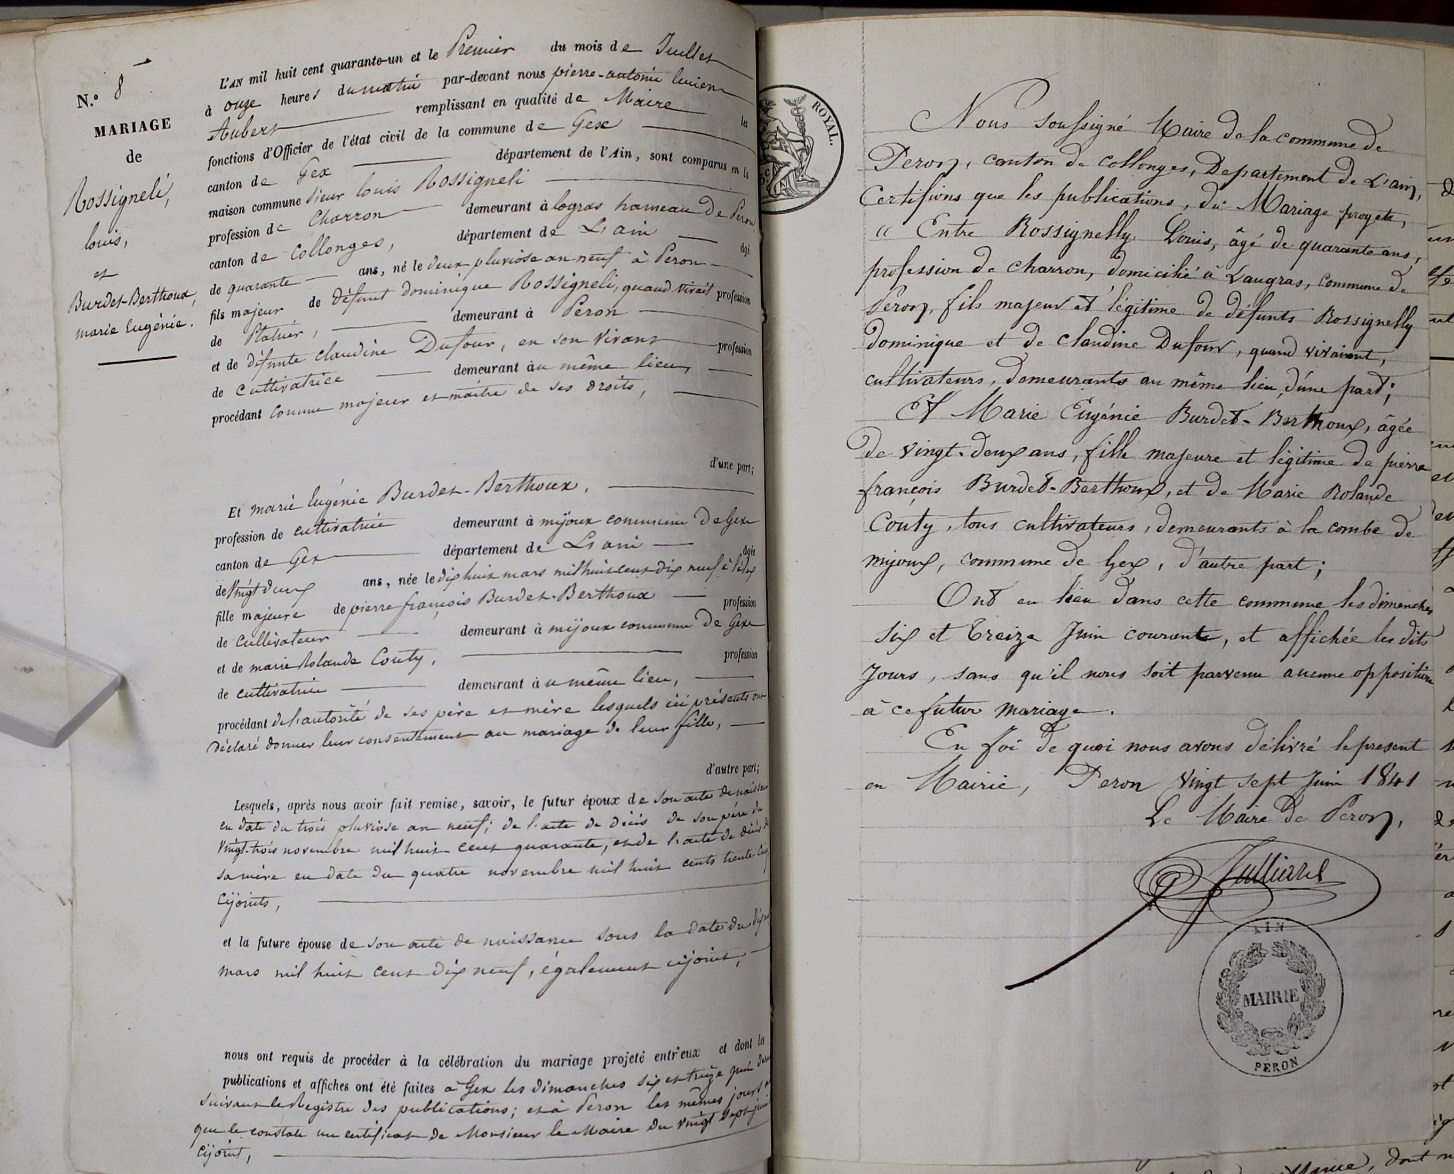 N.° 8
MARIAGE
de
Rossigneli,
louis,
et
Burdet-Berthoux,
marie Eugénie.
L'AN mil huit cent quarante-un et le Premier du mois de Juillet
à onze heures du matin par-devant nous pierre-antoine lucien
Aubert remplissant en qualité de Maire les
fonctions d'Officier de l'état civil de la commune de Gex
canton de Gex département de l'Ain, sont comparus en la
maison commune sieur louis Rossigneli
profession de Charron demeurant à logras hameau de Péron
canton de Collonges, département de L'ain âgé
de quarante ans, né le deux pluviose an neuf à Péron
fils majeur de défunt dominique Rossigneli, quand vivait profession
de Platrier, demeurant à Péron
et de défunte claudine Dufour, en son vivant profession
de cultivatrice demeurant au même lieu,
procédant comme majeur et maître de ses droits,
d'une part;
Et marie Eugénie Burdet-Berthoux,
profession de cultivatrice demeurant à mijoux commune de Gex
canton de Gex département de L'ain âgée
de vingt deux ans, née le dix huit mars mil huit cent dix neuf à
fille majeure de pierre françois Burdet-Berthoux profession
de cultivateur demeurant à mijoux commune de Gex
et de marie Rolande Couty, profession
de cultivatrice demeurant au même lieu,
procédant de l'autorité de ses père et mère lesquels ici présents ont
déclaré donner leur consentement au mariage de leur fille,
d'autre part;
Lesquels, après nous avoir fait remise, savoir, le futur époux de son acte de naissance
en date du trois pluviose an neuf; de l'acte de décès de son père du
vingt-trois novembre mil huit cent quarante, et de l'acte de décès de
sa mère en date du quatre novembre mil huit cents trente
cijoints,
et la future épouse de son acte de naissance sous la date du dix
mars mil huit cent dix neuf, également cijoint,
nous ont requis de procéder à la célébration du mariage projeté entr'eux et dont les
publications et affiches ont été faites à Gex les dimanches six et treize juin
suivant le Registre des publications; et à Péron les mêmes jours
que le constate un certificat de Monsieur le Maire du vingt sept juin
cijoint,
ROYAL.
Nous soussigné Maire de la commune de
Peron, canton de collonges, Departement de L'ain,
Certifions que les publications, du Mariage projeté,
" Entre Rossignelly Louis, âgé de quarante ans,
profession de charron, domicilié à Laugras, commune de
Péron, fils majeur et légitime de défunts Rossignelly
Dominique et de claudine Dufour, quand vivaient,
cultivateurs, demeurants au même lieu, d'une part;
Et Marie Eugénie Burdet-Berthoux, âgée
de vingt-deux ans, fille majeure et légitime de pierre
françois Burdet-Berthoux, et de Marie Rolande
Couty, tous cultivateurs, demeurants à la combe de
mijoux, commune de Gex, d'autre part;
Ont eu lieu dans cette commune les dimanches
six et treize Juin courant, et affichée les dits
Jours, sans qu'il nous soit parvenu aucune opposition
à ce futur mariage.
En foi de quoi nous avons délivré le present
en Mairie, Peron vingt sept Juin 1841
Le Maire de Peron,
Julliard
AIN
MAIRIE
PERON